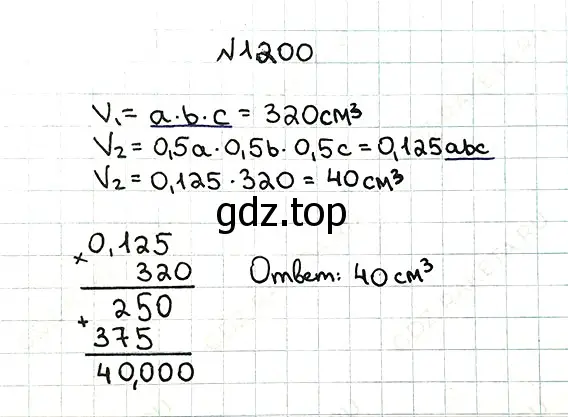 №1200
V₁ = a·b·c = 320см³
V₂ = 0,5a·0,5b·0,5c = 0,125abc
V₂ = 0,125·320 = 40см³
gdz.top
× 0,125
320
+ 250
375
40,000
Ответ: 40 см³